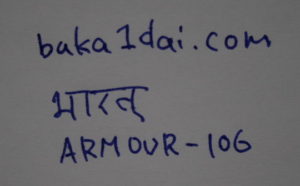 baka1dai.com
भारत्
ARMOUR-106